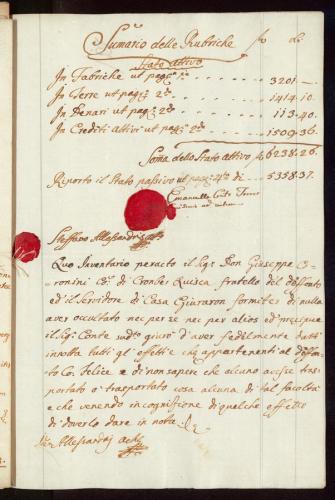 Sumario delle Rubriche
Stato attivo
In Fabriche ut pag: 3201.—
In Terre ut pag: 2: 1414.10.
In Denari ut pag: 2: 113.40.
In Crediti attivi ut pag: 2: 1509.36.
Soma dello Stato attivo f 6238.26.
Riporto il Stato passivo ut pag: 4: di 5358.37.
Emanuelle
Steffano Allessandri
Quo Inventario peracto il Sig: Don Giuseppe
fratello del defonto
ed il Servidore di Casa formiter di nulla
aver occultato nec per se nec per alios ed
il Sig: Conte giurò d'aver fedilmente datti
in nota tutti gl' effetti che appartenenti al defon-
to Co: Felice e di non sapere che alcuno avesse tras-
portato o trasportato cosa alcuna di tal facoltà
e che venendo in cognizione di qualche effetto
di doverlo dare in nota
Allessandri